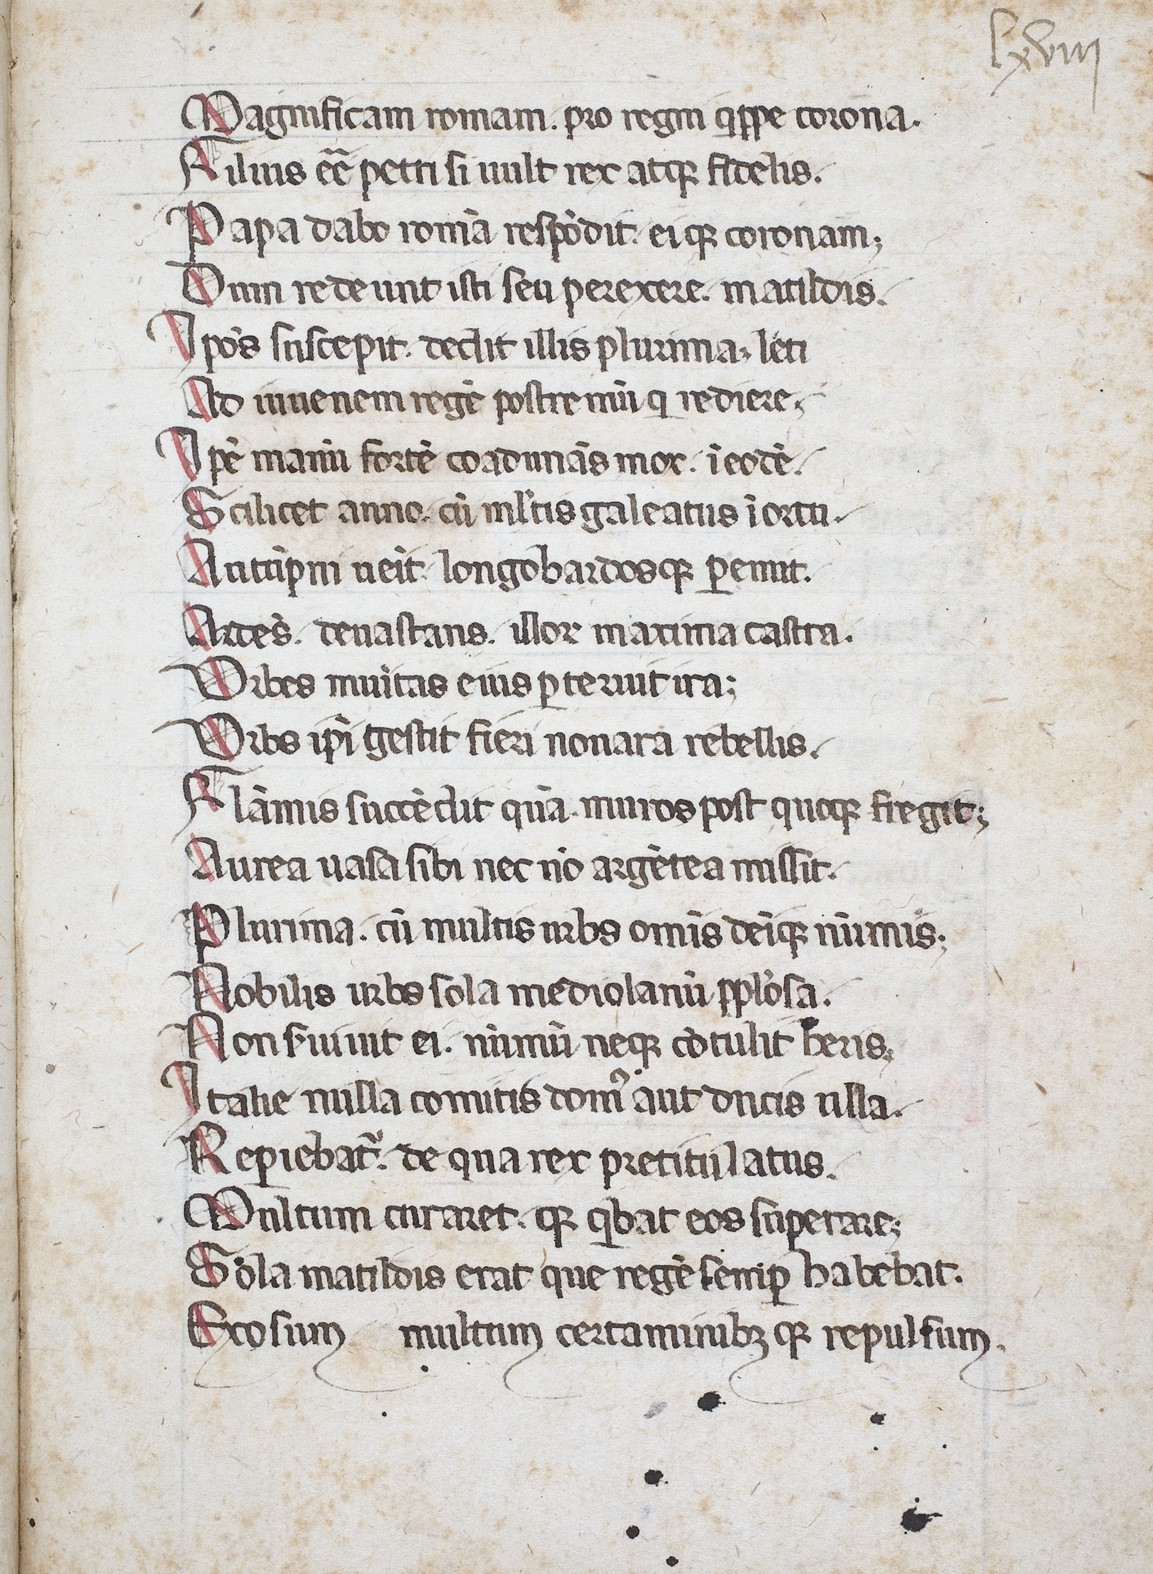 lxviii
Magnificam romam. pro regni q̇ppe corona.
Filius eē̄ petri si uult rex atqꝫ fidelis.
Papa dabo romā respōdit. eiqꝫ coronam;
Dum redeunt isti seu perexere. matildis.
Ipōs suscepit. dedit illis plurima; leti
Ad iuuenem regē postremū q̇ rediere;
Ipē manū fortē coadunās mox. ī eodē.
Scilicet anno. cū ml̓tis galeatus ī ortu.
Autūpni ueīt. longobardosqꝫ p̱emit.
Ardēs. deuastans. illoꝝ maxima castra.
Vrbes munitas eius p̱teruit ira;
Vrbs ip̄i gestit fieri nonara rebellis.
Flāmis succēdit quā. muros post quoqꝫ fregit;
Aurea uasa sibi nec nō argētea missit.
Plurima. cū multis urbs omīs deīqꝫ nūmis;
Nobilis urbs sola mediolanū pp̱lōsa.
Non ẜuiuit ei. nūmū neqꝫ cōtulit heris;
Italie nulla comitis domꝰ aut ducis ulla.
Rep̱iebat᷑. de qua rex pretitulatus.
Multum curaret. qꝫ q̇bat eos superare;
Sola matildis erat que regē semp̱ habebat.
Exosum multum certaminibꝫ qꝫ repulsum.